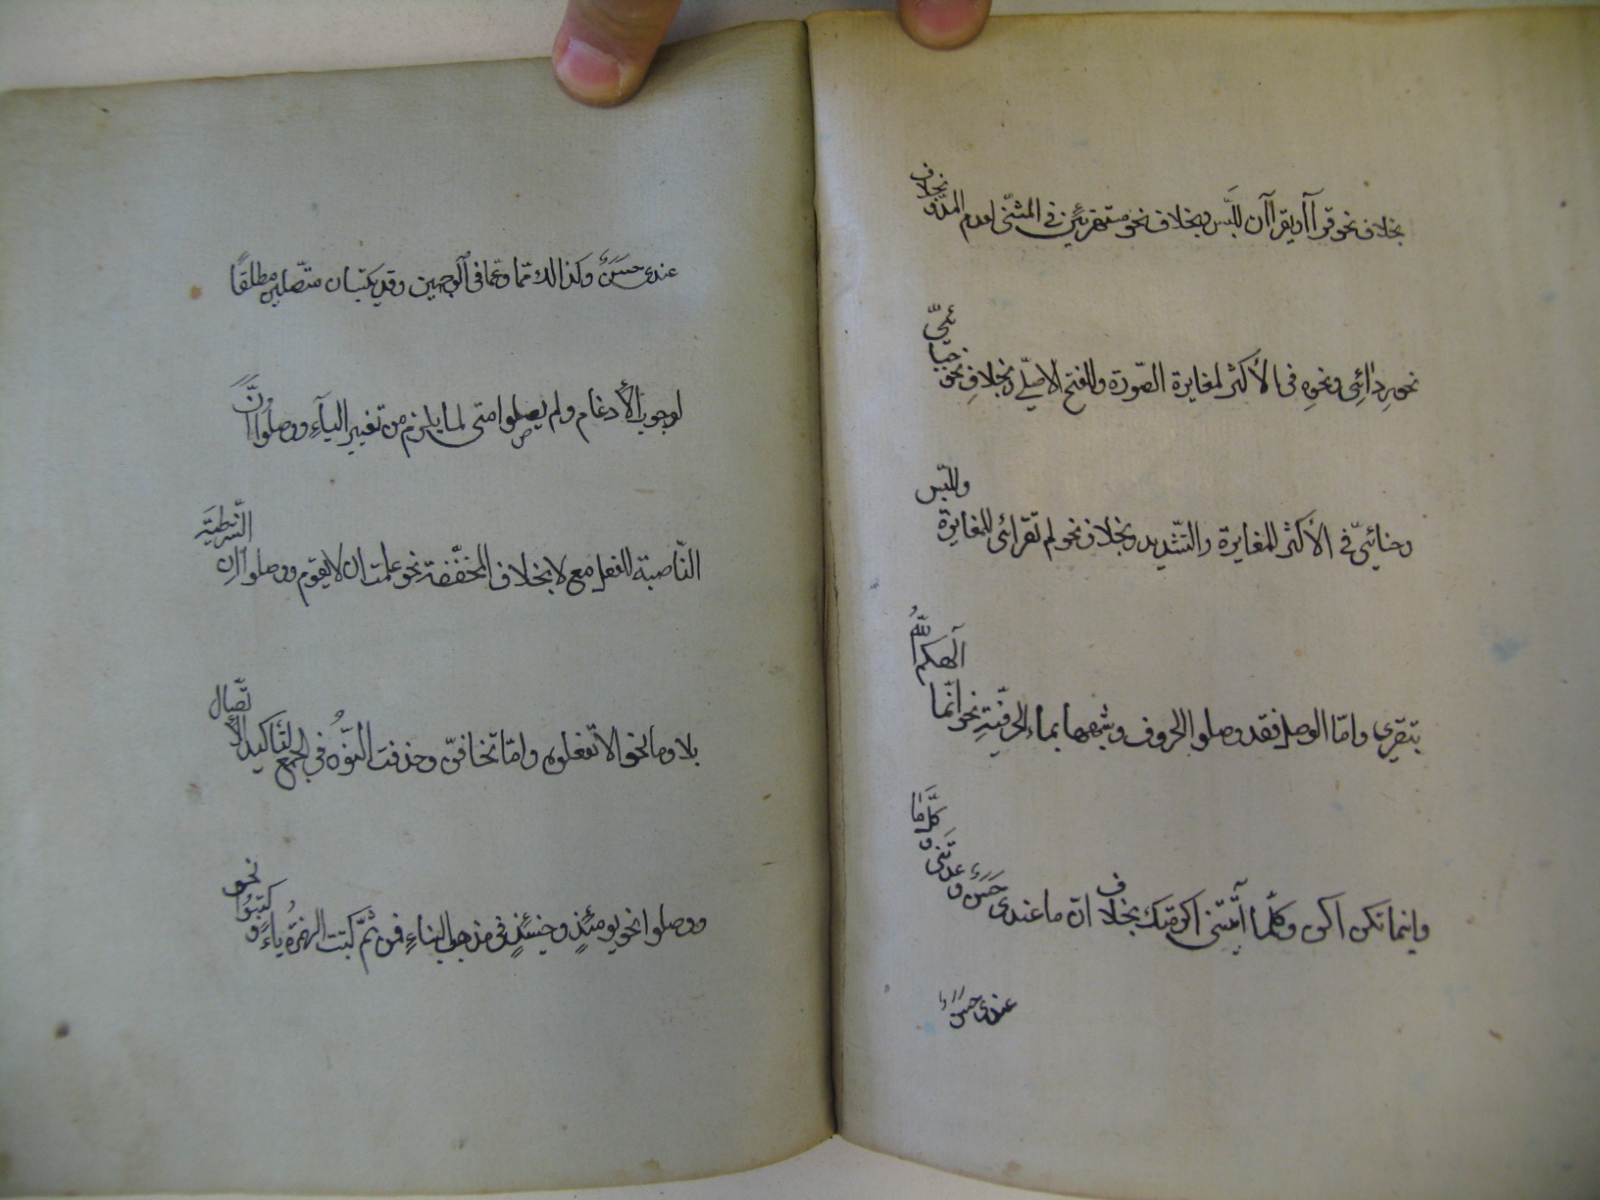 بخلاف نحو قرآ أو يقرأ آن للبس وبخلاف نحو مستهزئين في المثنى لعدم المد وبخلاف
نحو رداٰئي ونحوه في الأكثر لمغايرة الصّورة وللفتح الاصلي وبخلاف نحو حنائيّ
وحنائيّ في الأكثر للمغايرة والتشديد وبخلاف نحو لم تقرائى للمغايرة وللبّس
بتقرى وامّا الوصل فقد وصلوا الحروف وشبهها بماء الحرفيّة نحو انّما الٰهكم اللّٰه
واينما تكن اكن وكلّما أتيتنى اكرمتك بخلاف انّ ما عندى حسن وعدتنى وكلّ ما
عندى حسن
عندى حَسَن وكذالك ممّا وعمّا فى الوجهين وقد يكتبان متّصلين مطلقًا
لوجوب الأدغام ولم يصلوا متى لما يلزم من تغيير اليآء ووصلوا ان
النّاصبة للفعل مع لا بخلاف المخفّفة نحو علمت ان لا يقوم ووصلوا ان الشّرطيّة
بلا وما نحو الا تفعلوه وامّا تخافنّ وحذفت النّون في الجمع لتأكيد الأتّصال
ووصلوا نحو يومئذٍ وحينئذٍ في مذهب البناء فمن ثمّ كتبت الهمزة ياءً وكتبوا نحو